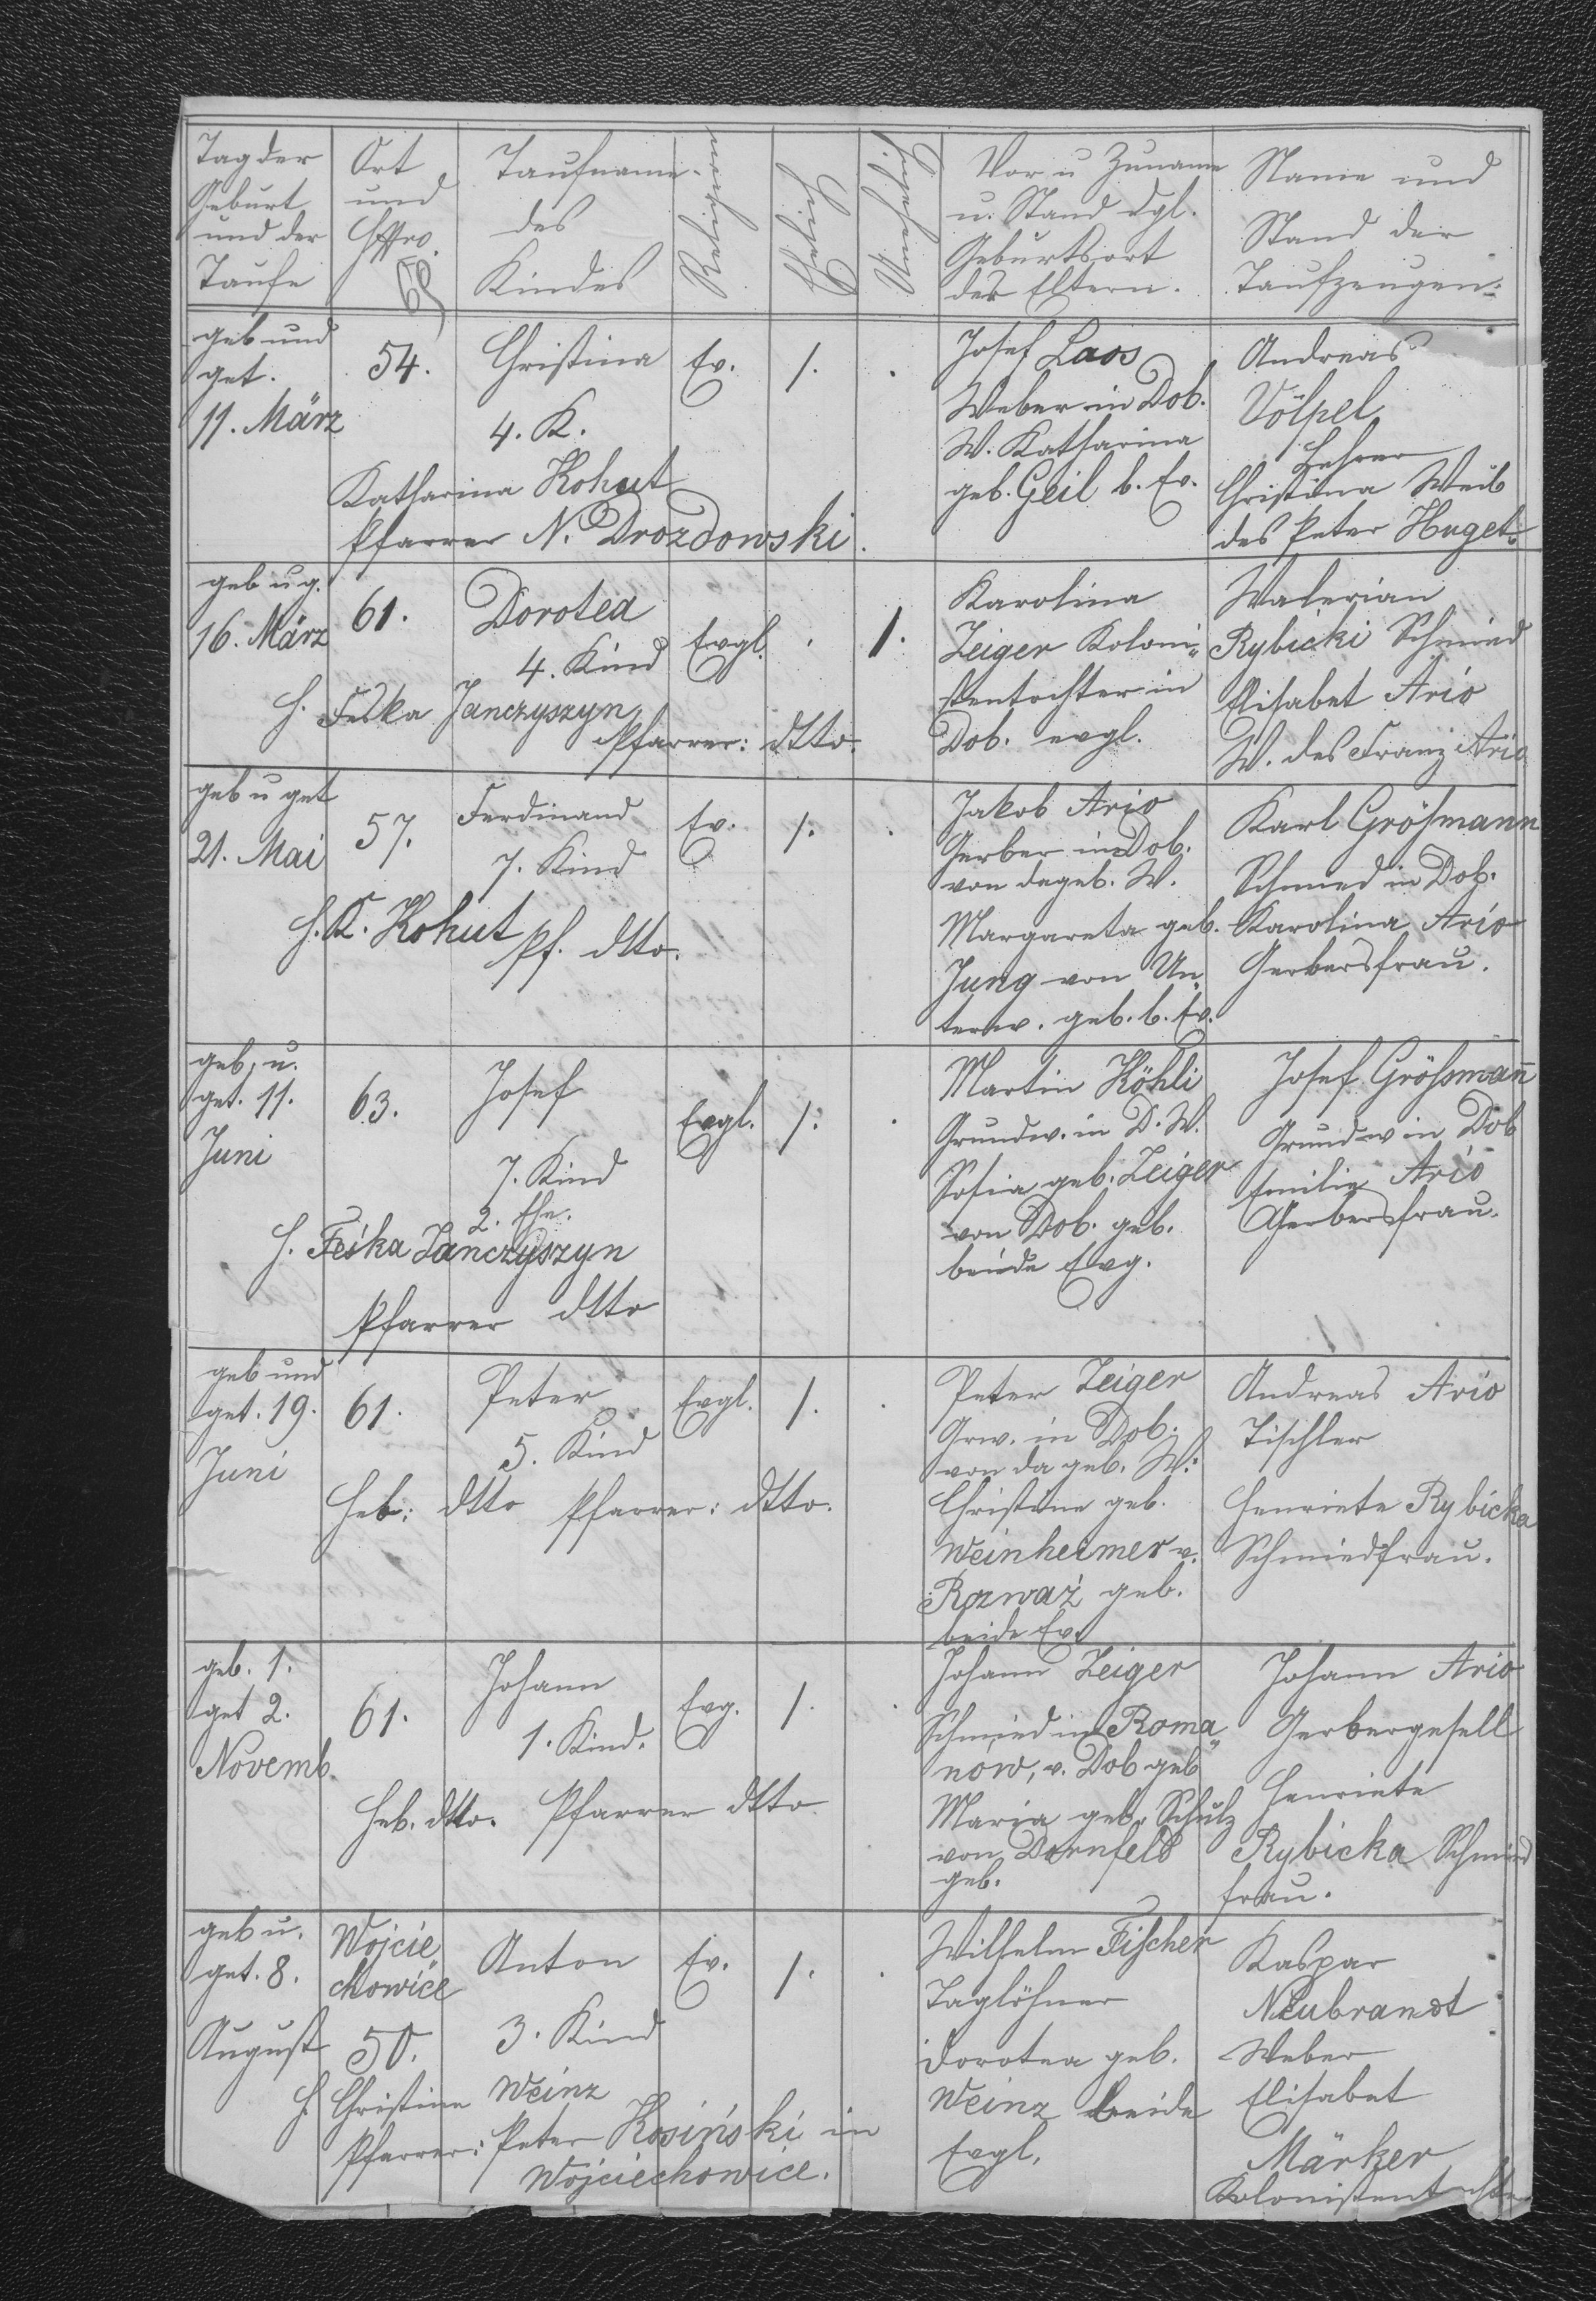 Tag der
Geburt
und der
Taufe
Ort
und
HsNro.
Taufname
des
Kindes
Religion
Ehelich
Unehelich
Vor u Zuname
u. Stand dgl.
Geburtsort
der Eltern.
Name und
Stand der
Taufzeugen.
geb und
get.
11. März
54.
Christina
4. K.
Ev.
1.
Josef Laos
Weber in Dob.
W. Katharina
geb. Geil b. Ev.
Andreas
Völpel
Lehrer
Christina Weib
des Peter Huget.
Katharina Kohut
Pfarrer N. Drozdowski.
geb u g.
16. März
61.
Dorotea
4. Kind
Evgl.
1.
Karolina
Zeiger Koloni„
stentochter in
Dob. evgl.
Walerian
Rybicki Schmied
Elisabet Ario
W. des Franz Ario
H. Feska Janczyszyn
Pfarrer: dtto.
geb u get
21. Mai
57.
Ferdinand
7. Kind
Ev.
1.
Jakob Ario
Gerber in Dob.
von da geb. W.
Margareta geb.
Jung von Un„
terw. geb. b. Ev.
Karl Größmann
Schmied in Dob.
Karolina Ario
Gerbersfrau.
H. K. Kohut
Pf. dtto.
geb. u.
get. 11.
Juni
63.
Josef
7. Kind
2. Ehe.
Evgl.
1.
Martin Köhli
Grundw. in D. W.
Sofia geb. Zeiger
von Dob. geb.
beide Evg.
Josef Größman̄
Grundw in Dob
Emilie Ario
Gerbersfrau.
H. Feśka Janczyszyn
Pfarrer dtto
geb und
get. 19.
Juni
61.
Peter
5. Kind
Evgl.
1.
Peter Zeiger
Grw. in Dob.
von da geb. W.
Christine geb.
Weinheimer v.
Rozważ geb.
beide Ev.
Andreas Ario
Tischler
Henriete Rybicka
Schmiedfrau.
Heb: dtto Pfarrer: dtto.
geb. 1.
get 2.
Novemb.
61.
Johann
1. Kind.
Evg.
1.
Johann Zeiger
Schmied in Roma„
nów, v. Dob geb
Maria geb. Schulz
von Dornfeld
geb.
Johann Ario
Gerbergesell
Henriete
Rybicka Schmied
frau.
Heb. dtto. Pfarrer dtto
geb u.
get. 8.
August
Wojcie„
chowice
50.
Anton
3. Kind
Ev.
1.
Wilhelm Fischer
Taglöhner
Dorotea geb.
Weinz beide
Evgl.
Kaspar
Neubrandt
Weber
Elisabet
Märker
Kolonistentochter
H. Christine Weinz
Pfarrer: Peter Kosiński in
Wojciechowice.